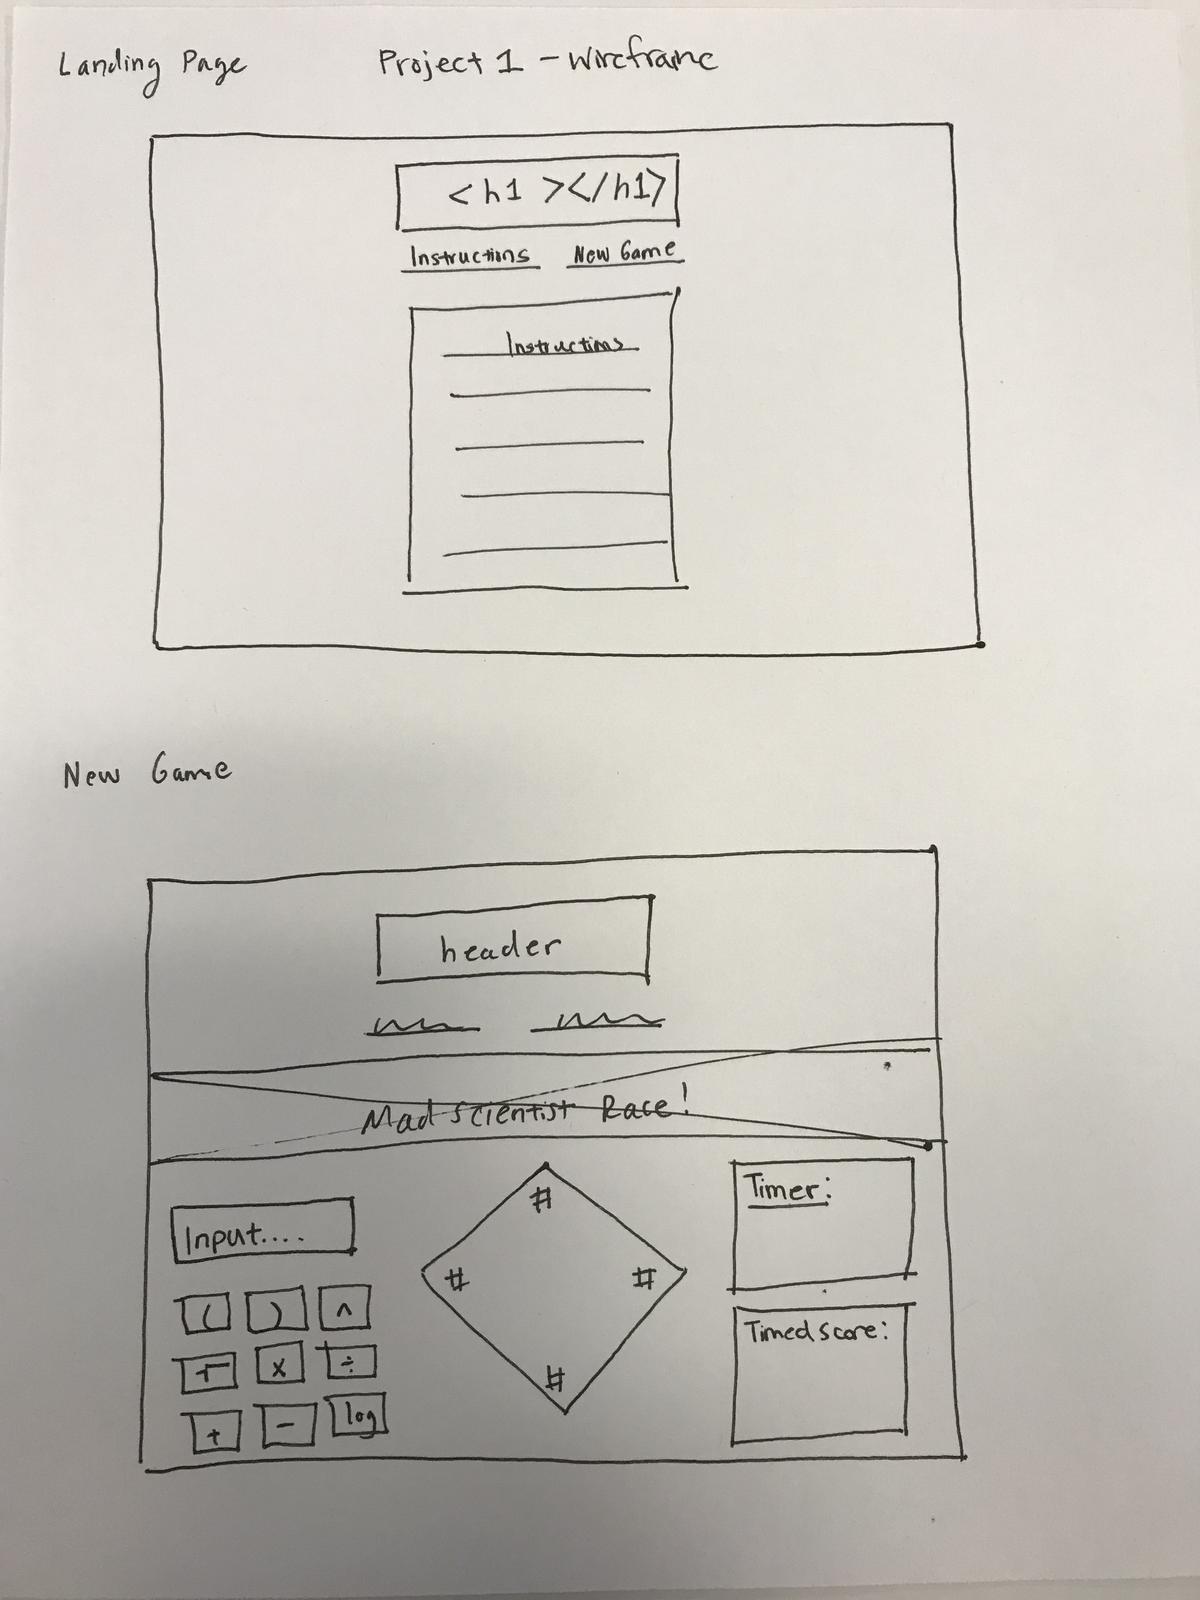 Landing Page Project 1 - Wireframe
<h1 ></h1>
Instructions New Game
Instructions
New Game
header
Mad scientist Race!
Input.... # Timer:
# #
( ) ^ Timed score:
√ x ÷ #
+ - log